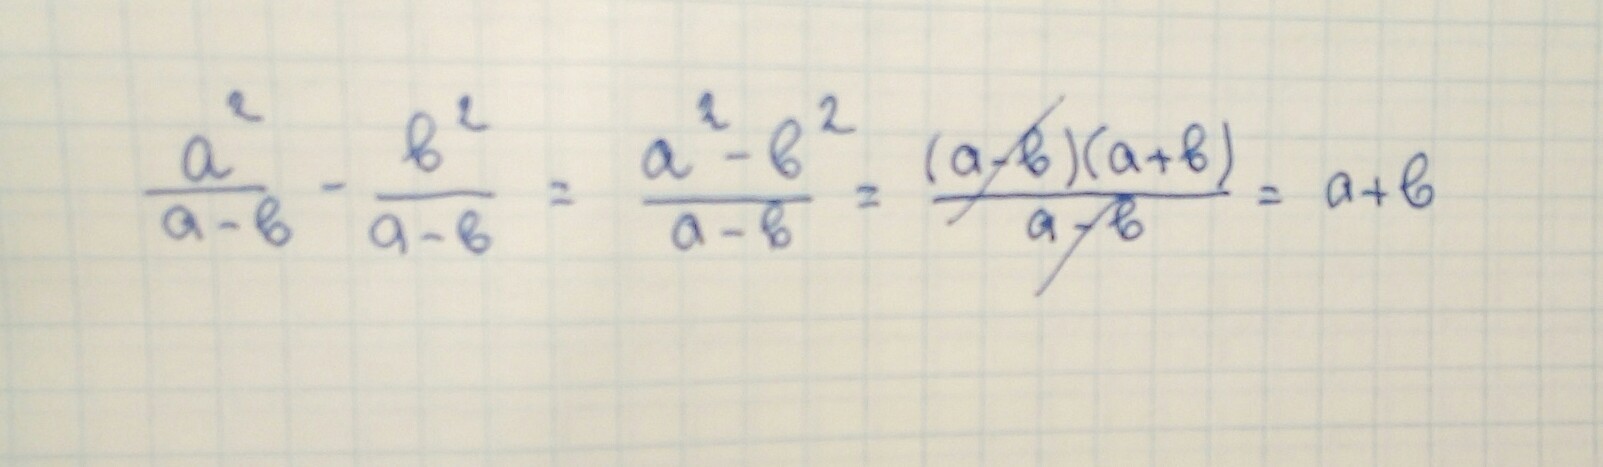 a²/(a-b) - b²/(a-b) = (a²-b²)/(a-b) = (a-b)(a+b)/(a-b) = a+b